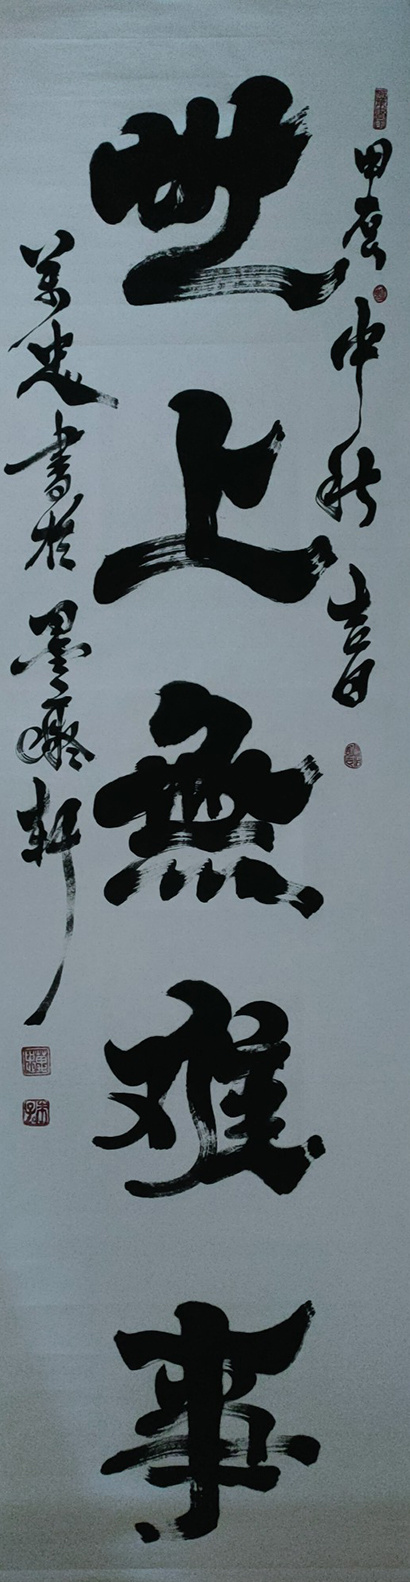 甲辰中秋吉日
世上無难事
萬忠書於墨軒